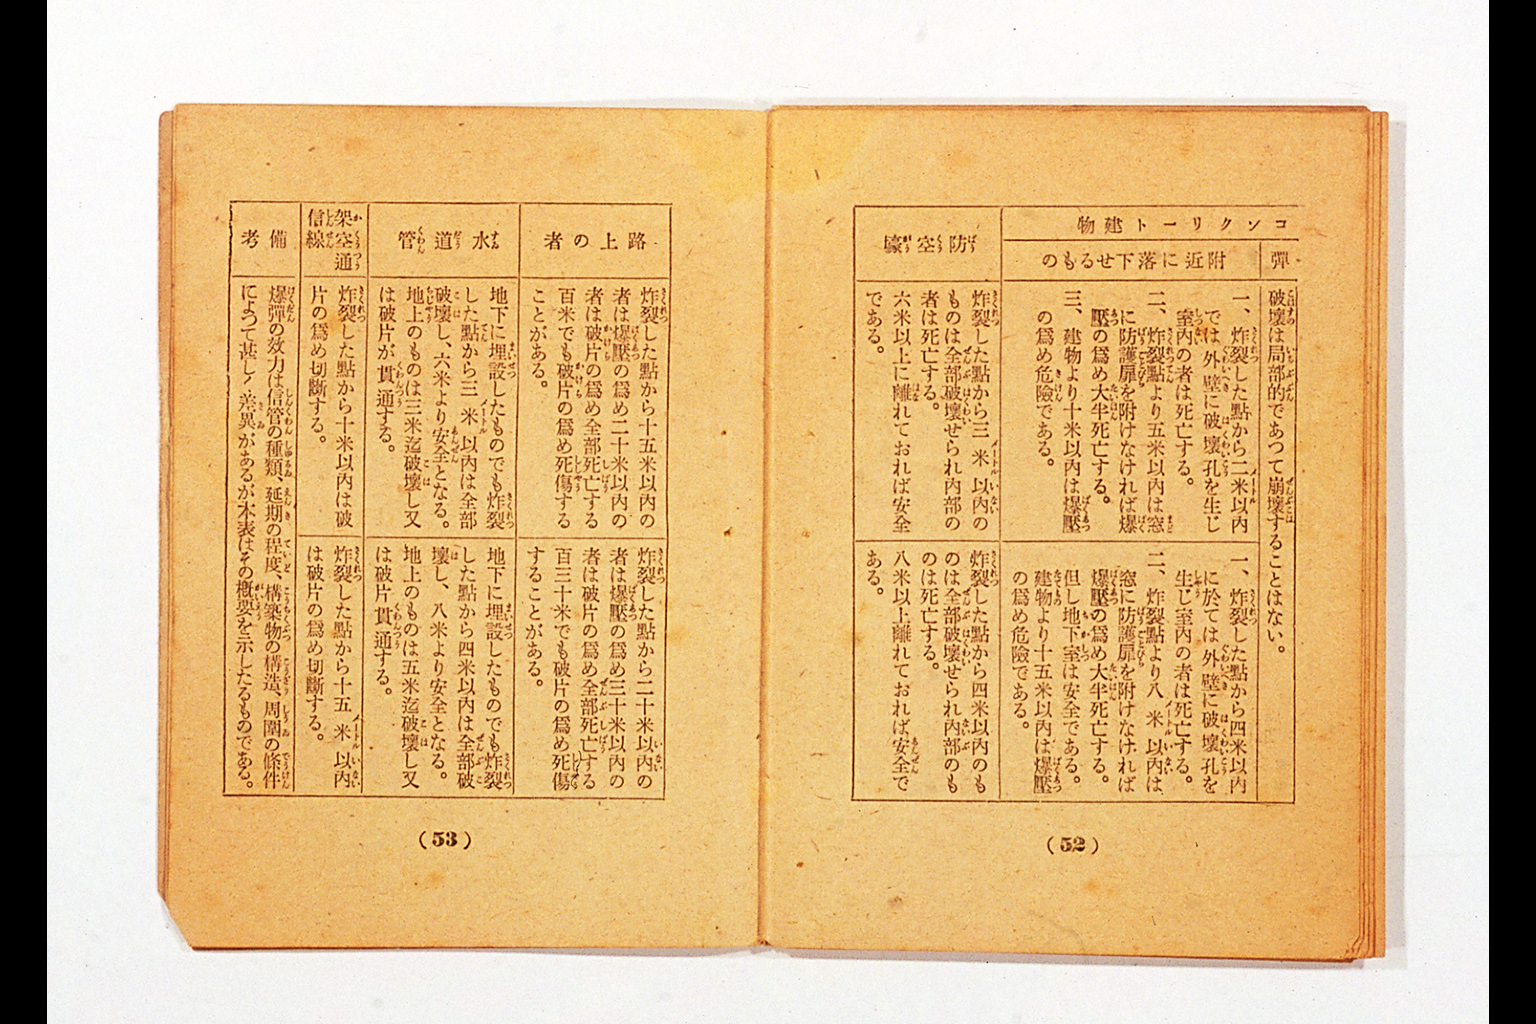 コンクリート建物
彈
破壞は局部的であつて崩壞することはない。
附近に落下せるもの
一、炸裂した點から二米以內
では外壁に破壞孔を生じ
室內の者は死亡する。
二、炸裂點より五米以內は窓
に防護扉を附けなければ爆
壓の爲め大半死亡する。
三、建物より十米以內は爆壓
の爲め危險である。
一、炸裂した點から四米以內
に於ては外壁に破壞孔を
生じ室內の者は死亡する。
二、炸裂點より八米以內は
窓に防護扉を附けなければ
爆壓の爲め大半死亡する。
但し地下室は安全である。
建物より十五米以內は爆壓
の爲め危險である。
防空壕
炸裂した點から三米以內の
ものは全部破壞せられ內部の
者は死亡する。
六米以上に離れておれば安全
である。
炸裂した點から四米以內のも
のは全部破壞せられ內部のも
のは死亡する。
八米以上離れておれば安全で
ある。
(52)
路上の者
炸裂した點から十五米以內の
者は爆壓の爲め二十米以內の
者は破片の爲め全部死亡する
百米でも破片の爲め死傷する
ことがある。
炸裂した點から二十米以內の
者は爆壓の爲め三十米以內の
者は破片の爲め全部死亡する
百三十米でも破片の爲め死傷
することがある。
水道管
地下に埋設したものでも炸裂
した點から三米以內は全部
破壞し、六米より安全となる。
地上のものは三米迄破壞し又
は破片が貫通する。
地下に埋設したものでも炸裂
した點から四米以內は全部破
壞し、八米より安全となる。
地上のものは五米迄破壞し又
は破片貫通する。
架空通
信線
炸裂した點から十米以內は破
片の爲め切斷する。
炸裂した點から十五米以內
は破片の爲め切斷する。
備考
爆彈の效力は信管の種類、延期の程度、構築物の構造、周圍の條件
によつて甚しく差異があるが本表はその概要を示したるものである。
(53)